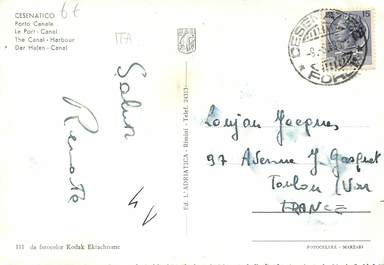 CESENATICO
Porto Canale
Le Port - Canal
The Canal - Harbour
Der Hafen - Canal
6€
ITA
Saluti
Renato
Ed. L'ADRIATICA - Rimini - Telef. 24353
15
CESENATICO
FORLI
Jacques
97 Avenue J Gasquet
Toulon (Var
FRANCE
111 da fotocolor Kodak Ektachrome
FOTOCELERE - MARZARI